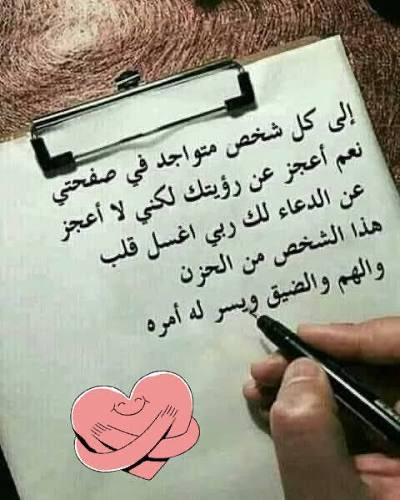 إلى كل شخص متواجد في صفحتي
نعم أعجز عن رؤيتك لكني لا أعجز
عن الدعاء لك ربي اغسل قلب
هذا الشخص من الحزن
والهم والضيق ويسر له أمره